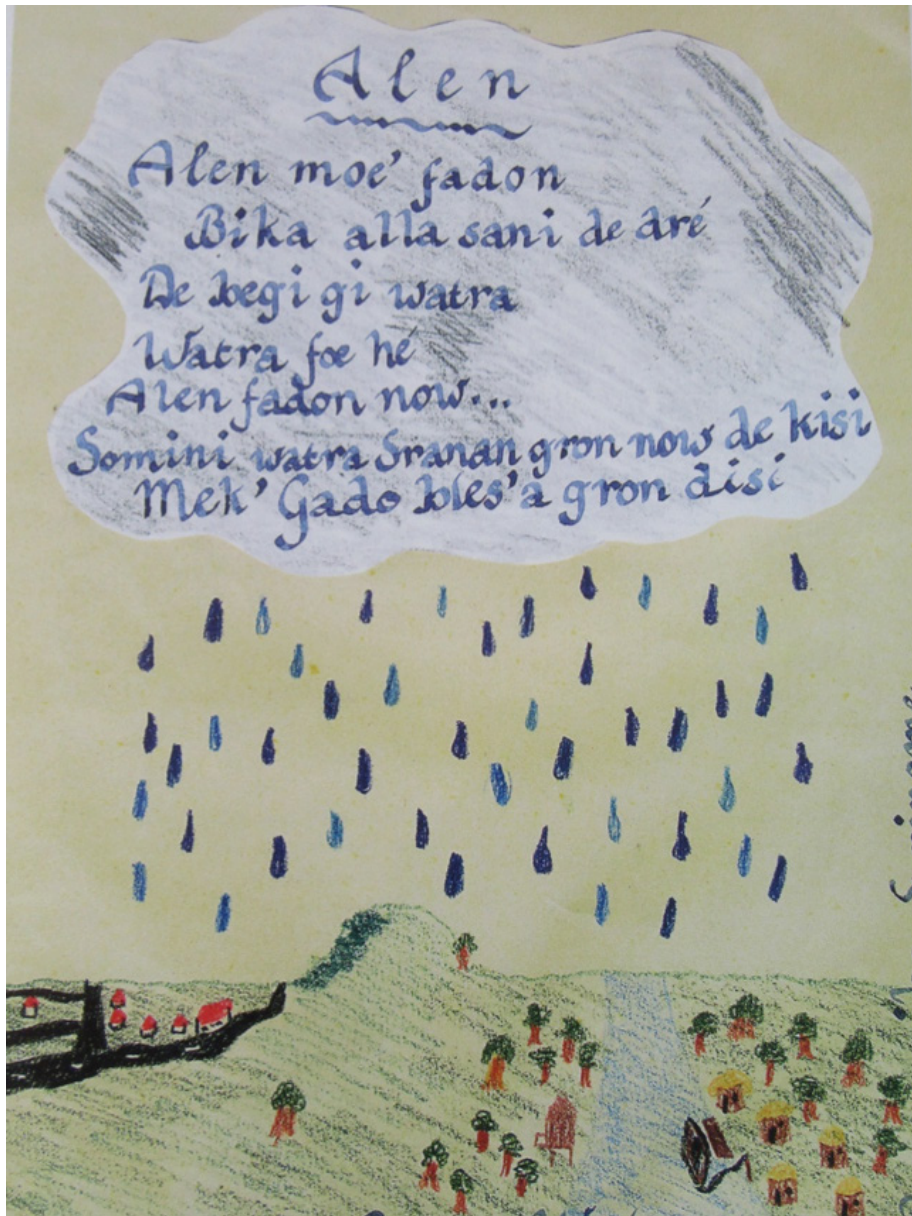 Alen
Alen moe' fadon
Bika alla sani de dré
De begi gi watra
Watra foe hé
Alen fadon now...
Somini watra Sranan gron now de kisi
Mek' Gado bles' a gron disi